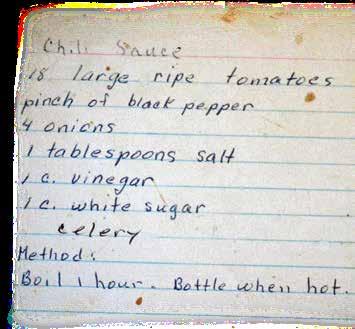 Chili Sauce
18 large ripe tomatoes
pinch of black pepper
4 onions
1 tablespoons salt
1 c. vinegar
1 c. white sugar
celery
Method:
Boil 1 hour. Bottle when hot.